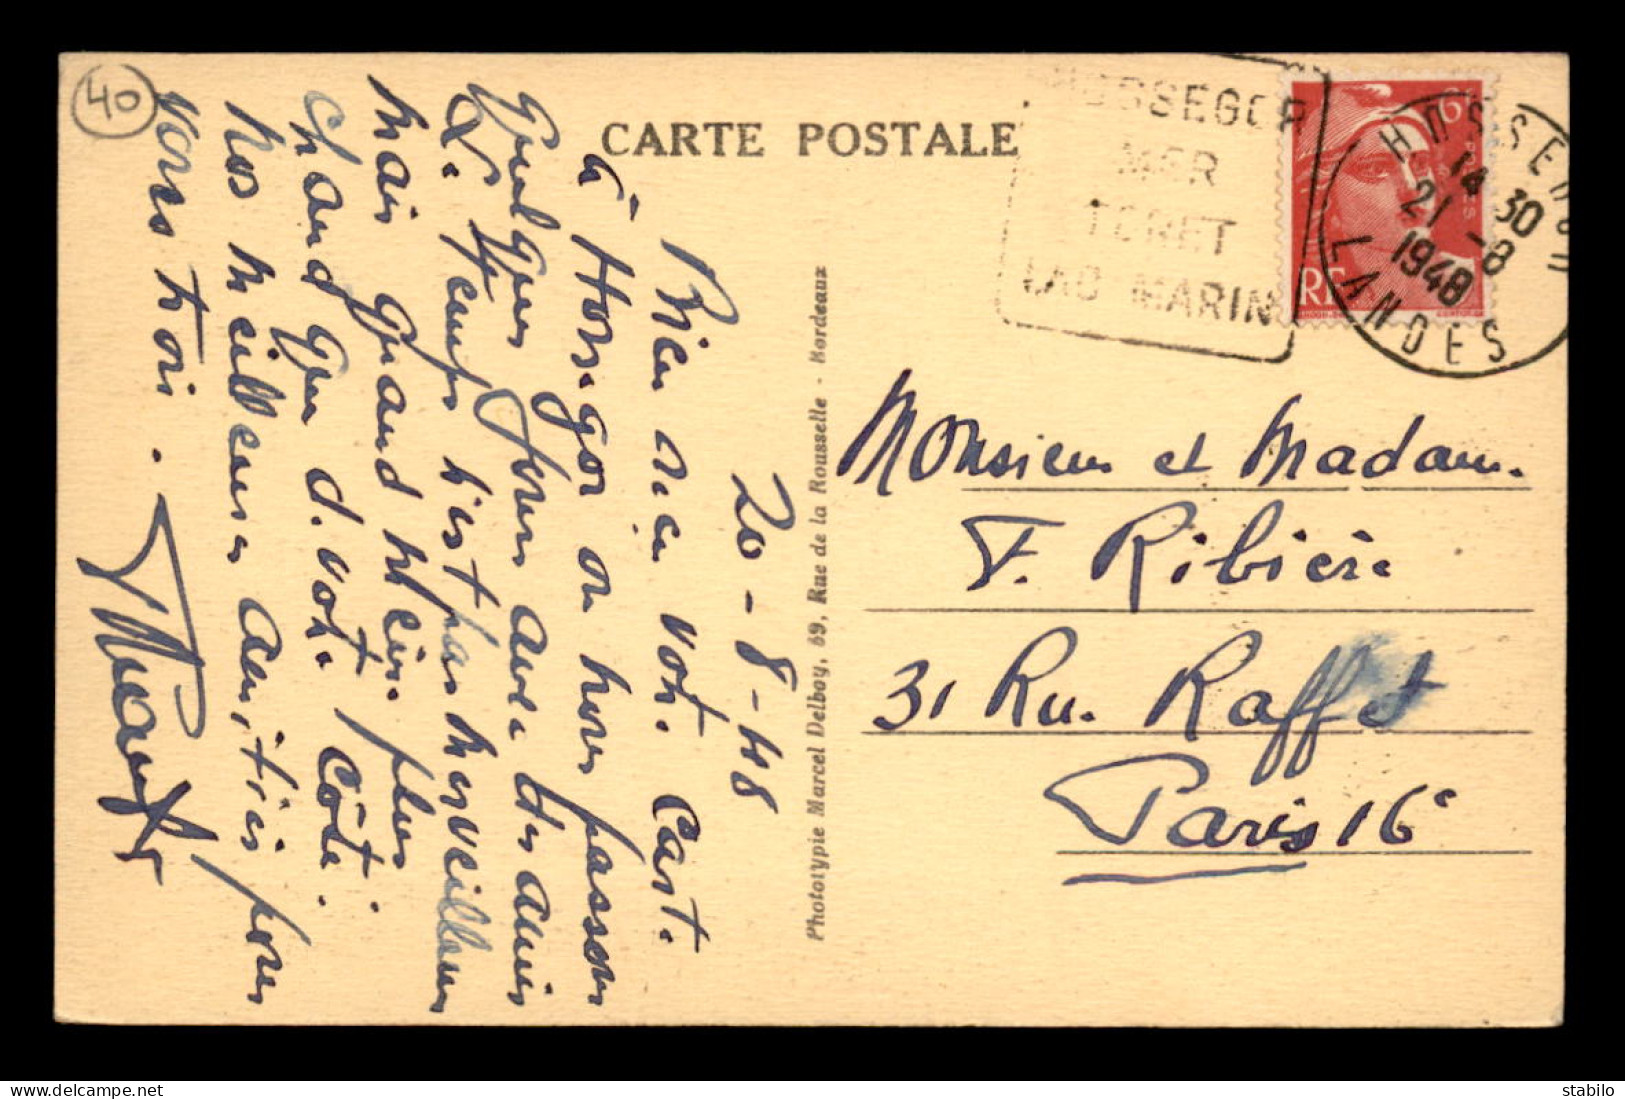 40
CARTE POSTALE
HOSSEGOR
MER
FORET
LAC MARIN
6
RF
HOSSEGOR
14 30
21 -8
1948
LANDES
20-8-48
Bien reçu votre carte
à Hossegor où nous passons
quelques jours avec des amis
Le temps n'est pas merveilleux
mais quand même plus
chaud que d. votre côté.
Nos meilleures amitiés pour
vous trois.
Phototypie Marcel Delboy, 69, Rue de la Rousselle - Bordeaux
Monsieur et Madame
F. Ribière
31 Rue Raffet
Paris 16e
stabilo